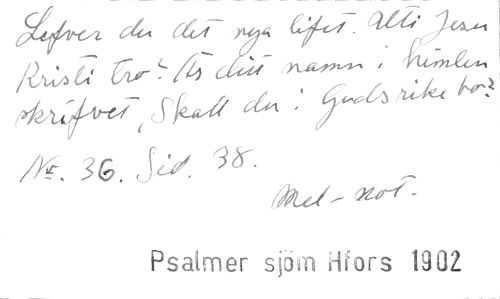 Lefver du det nya lifvet. Alti Jesu
Kristi tro? Är ditt namn i himlen
skrifvet, Skall du i Guds rike bo?
Nr. 36. Sid. 38.
Mel-not.
Psalmer sjöm Hfors 1902